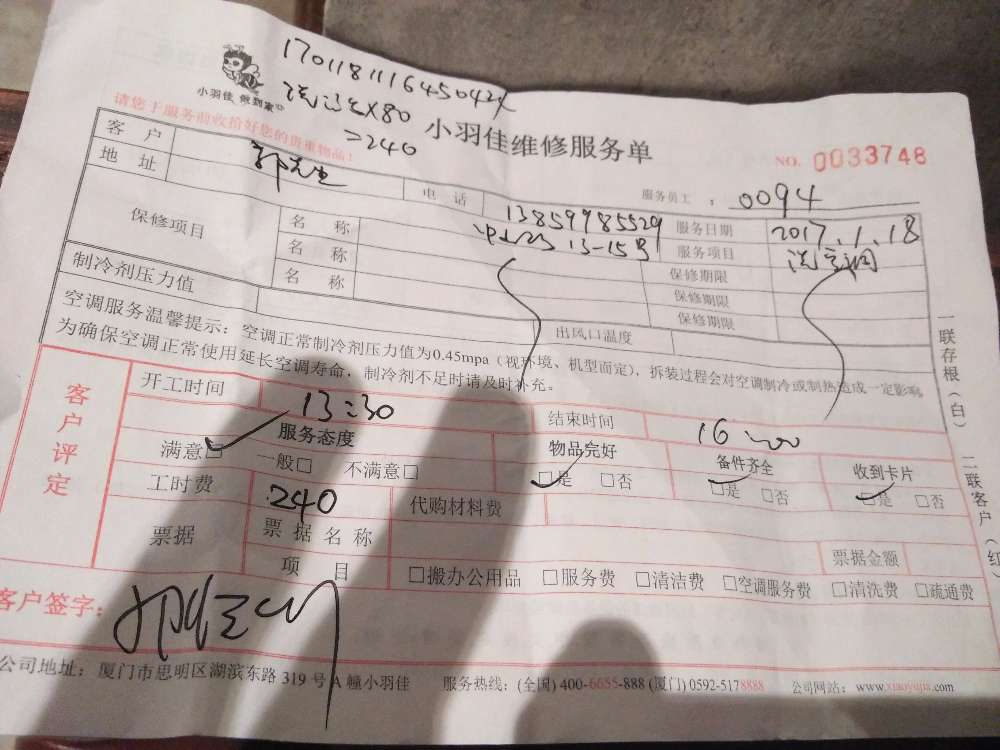 小羽佳 做到家
请您于服务前收拾好您的贵重物品!
小羽佳维修服务单
NO. 0033748
=240
服务员工: 0094
客户
地址
电话 13859985529
13-15号
服务日期 2017.1.18
服务项目 洗空调
保修项目
名称 保修期限
名称 保修期限
名称 保修期限
制冷剂压力值
出风口温度
空调服务温馨提示: 空调正常制冷剂压力值为0.45mpa (视环境、机型而定), 拆装过程会对空调制冷或制热造成一定影响
为确保空调正常使用延长空调寿命, 制冷剂不足时请及时补充。
客户评定
开工时间 13:30
结束时间 16:00
服务态度 物品完好 备件齐全 收到卡片
满意□ 一般□ 不满意□ □是 □否 □是 □否 □是 □否
工时费 240 代购材料费
票据 票据名称 票据金额
项目 □搬办公用品 □服务费 □清洁费 □空调服务费 □清洗费 □疏通费
客户签字:
公司地址: 厦门市思明区湖滨东路 319 号 A 幢小羽佳 服务热线: (全国) 400-6655-888 (厦门) 0592-5178888 公司网站: www.xiaoyujia.com
一联存根(白) 二联客户(红